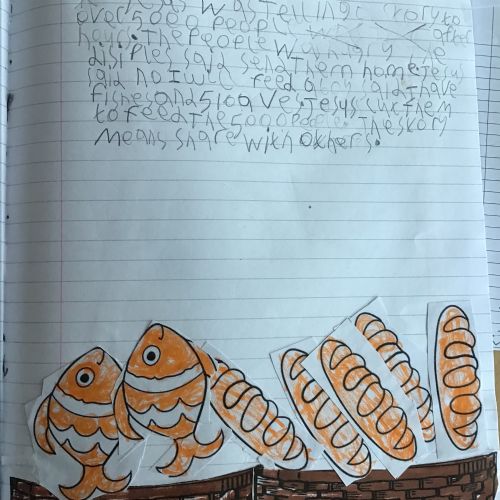 was telling story to
over 5000 people after
hours. The people hungry
said send Them home. Jesus
said no I will feed said I have
fishes and 5 loaves. Jesus
to feed The 5000 The story
means share with others.